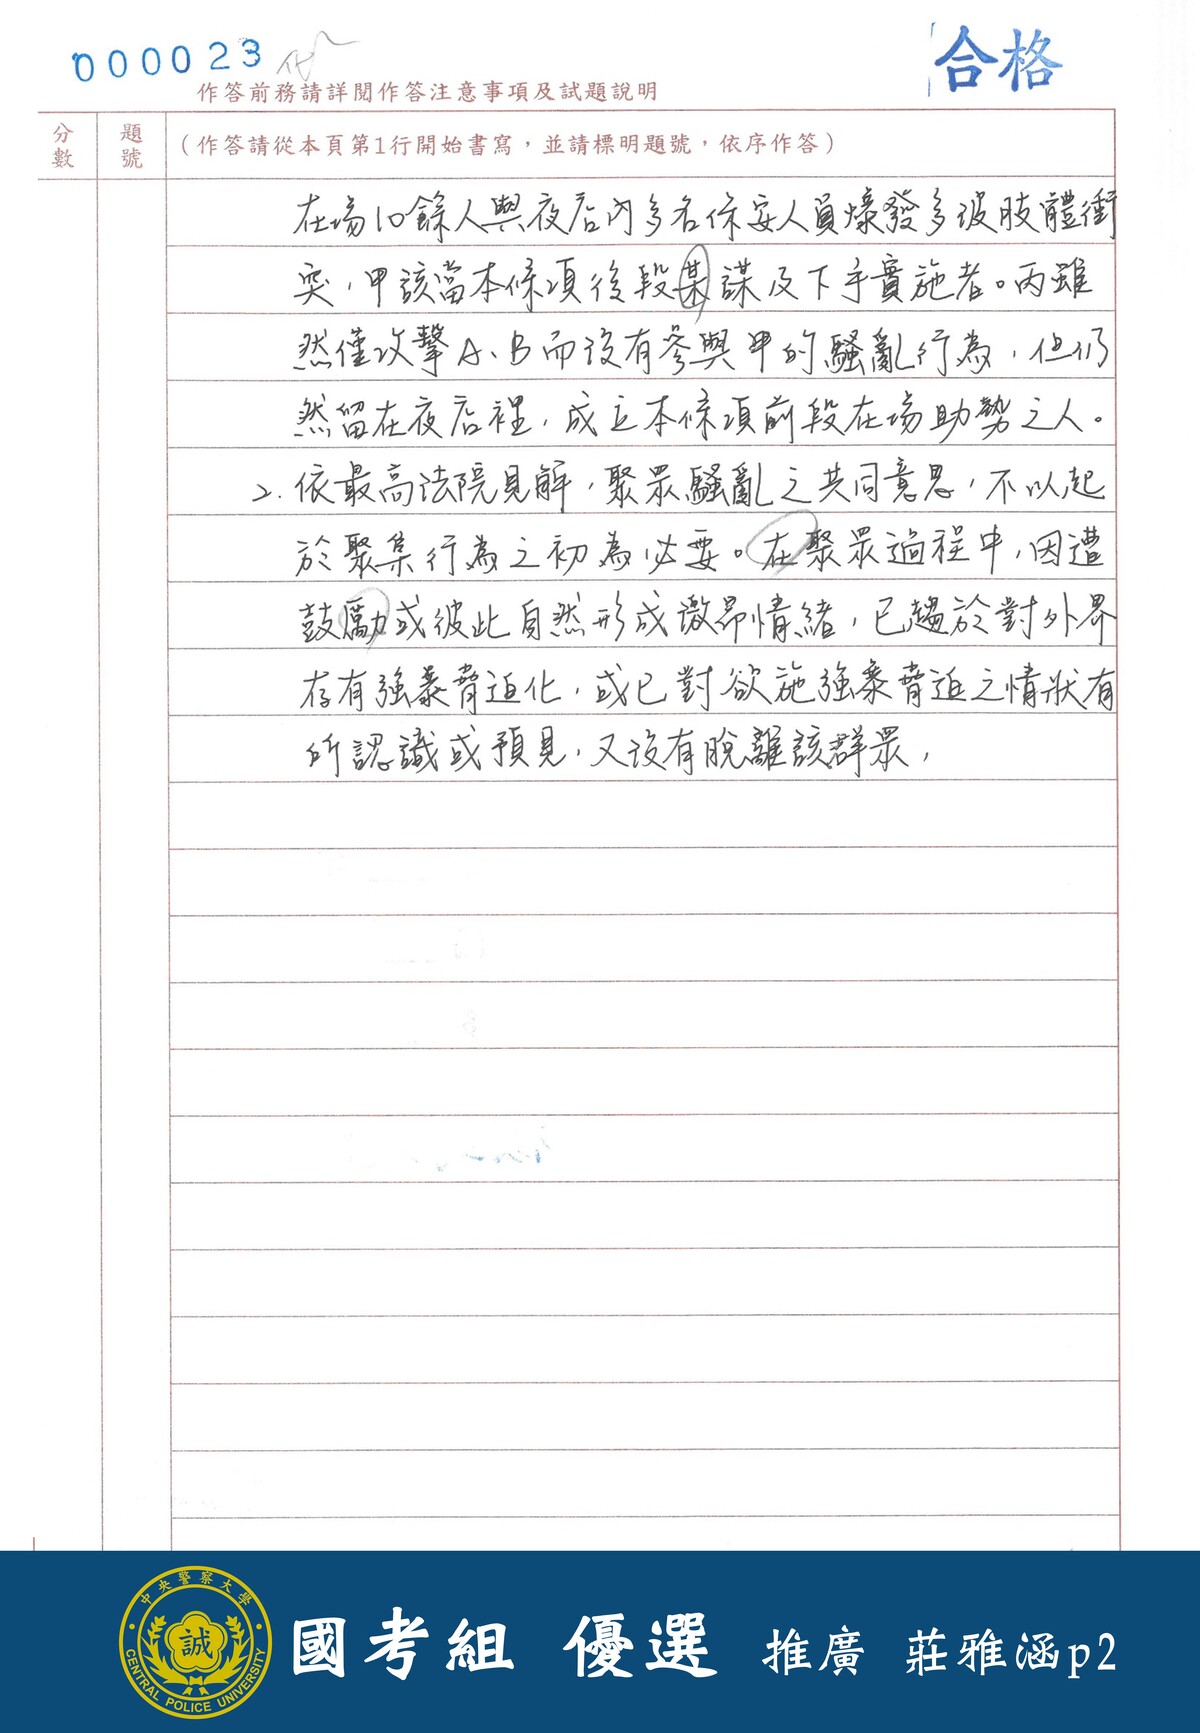 000023
合格
作答前務請詳閱作答注意事項及試題說明
分數
題號
(作答請從本頁第1行開始書寫，並請標明題號，依序作答)
在場10餘人與夜店內多名保安人員爆發多波肢體衝
突，甲該當本條項後段某謀及下手實施者。丙雖
然僅攻擊A、B而沒有參與甲的騷亂行為，但仍
然留在夜店裡，成立本條項前段在場助勢之人。
2. 依最高法院見解，聚眾騷亂之共同意思，不以起
於聚集行為之初為必要。在聚眾過程中，因遭
鼓勵或彼此自然形成激昂情緒，已趨於對外界
存有強暴脅迫化，或已對欲施強暴脅迫之情狀有
所認識或預見，又沒有脫離該群眾，
中央警察大學
誠
CENTRAL POLICE UNIVERSITY
國考組 優選 推廣 莊雅涵p2